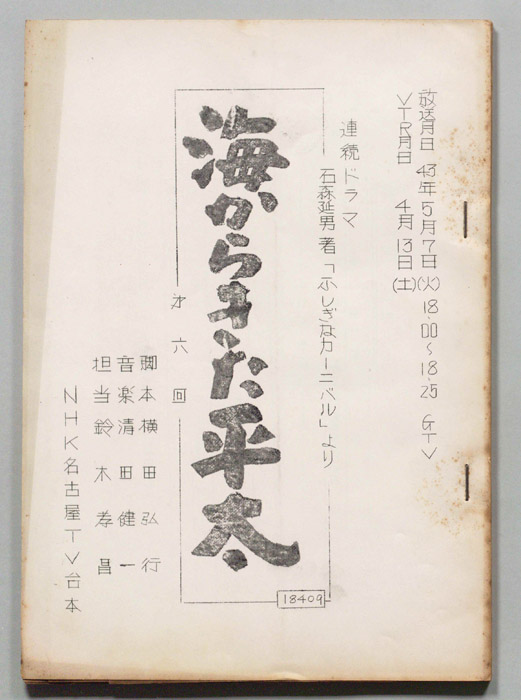 放送月日 43年5月7日(火) 18.00〜18.25 GTV
VTR月日 4月13日(土)
連続ドラマ
石森延男著「ふしぎなカーニバル」より
海からきた平太
才六回
脚本横田弘行
音楽清田健一
担当鈴木孝昌
NHK名古屋TV台本
18409